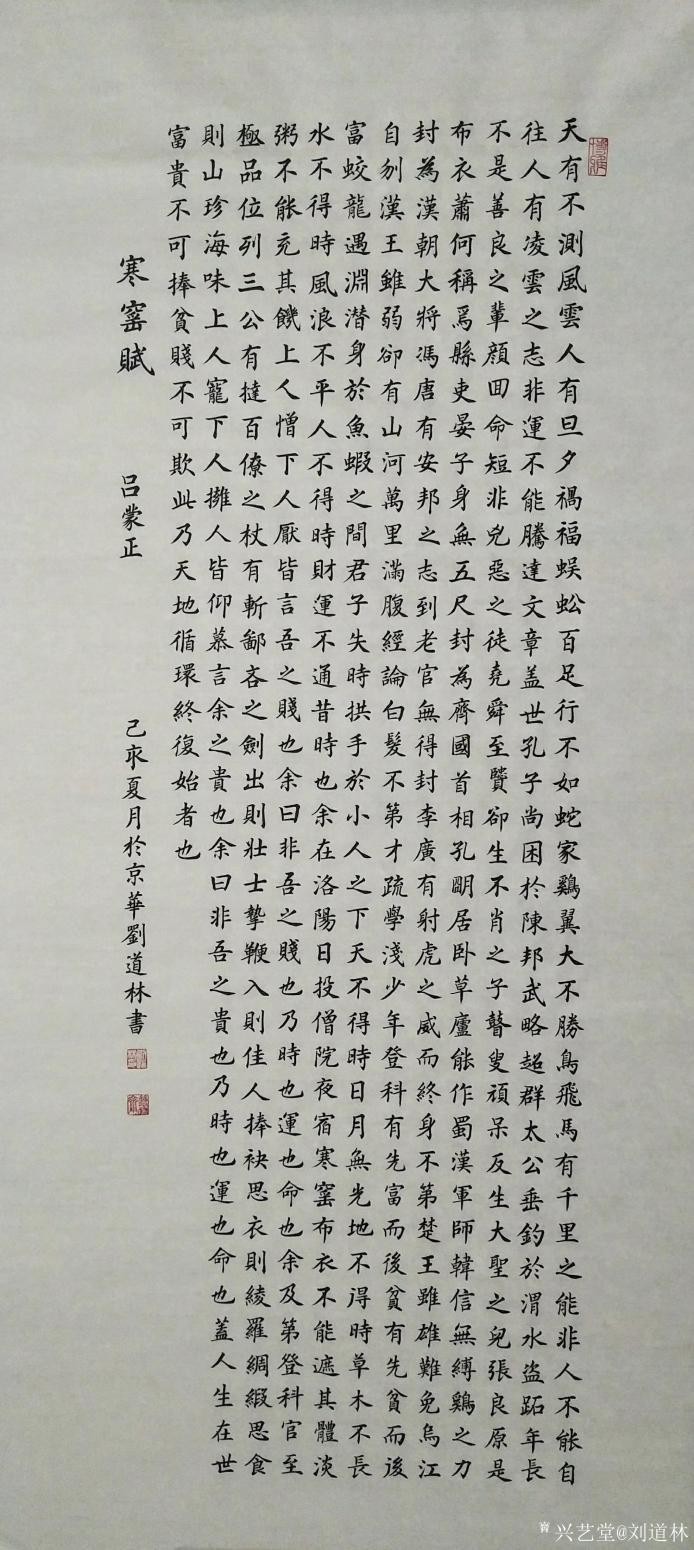 天有不測風雲人有旦夕禍福蜈蚣百足行不如蛇家鷄翼大不勝鳥飛馬有千里之能非人不能自
往人有凌雲之志非運不能騰達文章盖世孔子尚困於陳邦武略超群太公垂釣於渭水盜跖年長
不是善良之輩顏回命短非兇惡之徒堯舜至賢卻生不肖之子瞽叟頑呆反生大聖之兒張良原是
布衣蕭何稱爲縣吏晏子身無五尺封為齊國首相孔明居卧草廬能作蜀漢軍師韓信無縛鷄之力
封為漢朝大將馮唐有安邦之志到老官無得封李廣有射虎之威而終身不第楚王雖雄難免烏江
自刎漢王雖弱卻有山河萬里滿腹經論白髮不第才疏學淺少年登科有先富而後貧有先貧而後
富蛟龍遇淵潜身於魚蝦之間君子失時拱手於小人之下天不得時日月無光地不得時草木不長
水不得時風浪不平人不得時財運不通昔時也余在洛陽日投僧院夜宿寒窰布衣不能遮其體淡
粥不能充其饑上人憎下人厭皆言吾之賤也余曰非吾之賤也乃時也運也命也余及第登科官至
極品位列三公有撻百僚之杖有斬鄙吝之劍出則壯士摯鞭入則佳人捧袂思衣則綾羅綢緞思食
則山珍海味上人寵下人擁人皆仰慕言余之貴也余曰非吾之貴也乃時也運也命也蓋人生在世
富貴不可捧貧賤不可欺此乃天地循環終復始者也
寒窰賦 吕蒙正 己亥夏月於京華劉道林書
兴艺堂@刘道林